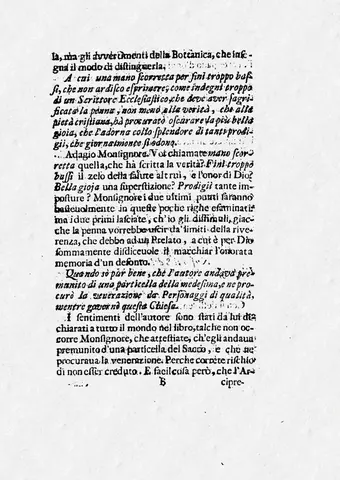 la, ma gli avvertimenti della Bottanica, che inse-
gna il modo di distinguerla.
A cui una mano scorretta per fini troppo bas-
si, che non ardisco esprimere, come indegni troppo
di un Scrittore Ecclesiastico, che deve aver sagri-
ficata la penna, non meno alla verità, che alla
pietà cristiana, hà procurato oscurare la più bella
gioia, che l'adorna collo splendore di tanti prodi-
gii, che giornalmente si adora.
Adagio Monsignore. Voi chiamate mano scor-
retta quella, che hà scritta la verità? Fini troppo
bassi il zelo della salute altrui, e l'onor di Dio?
Bella gioja una superstizione? Prodigii tante im-
posture? Monsignore i due ultimi punti saranno
basteuolmente in queste poche righe esaminati:
ma i due primi lasciate, ch'io gli dissimuli, giac-
che la penna vorrebbe uscir da'limiti della rive-
renza, che debbo ad un Prelato, a cui è per Dio
sommamente disdiceuole il macchiar l'onorata
memoria d'un defonto.
Quando sò pur bene, che l'autore andava pre-
munito di una particella della medesima, e ne pro-
curò la venerazione da Personaggi di qualità,
mentre governò questa Chiesa.
I sentimenti dell'autore sono stati da lui di-
chiarati a tutto il mondo nel libro, talche non oc-
corre Monsignore, che attestiate, ch'egli andaua
premunito d'una particella del Sasso, e che ne
procuraua la venerazione. Perche correte rischio
di non esser creduto. E facil cosa però, che l'Ar-
B
cipre-